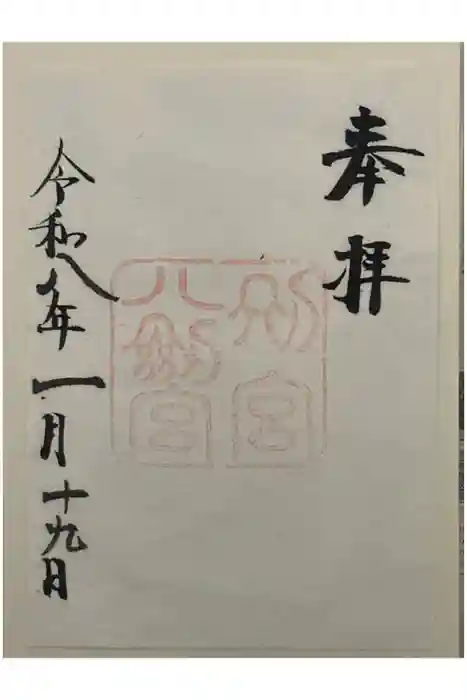 奉拝
別宮
八剱宮
令和八年一月十九日